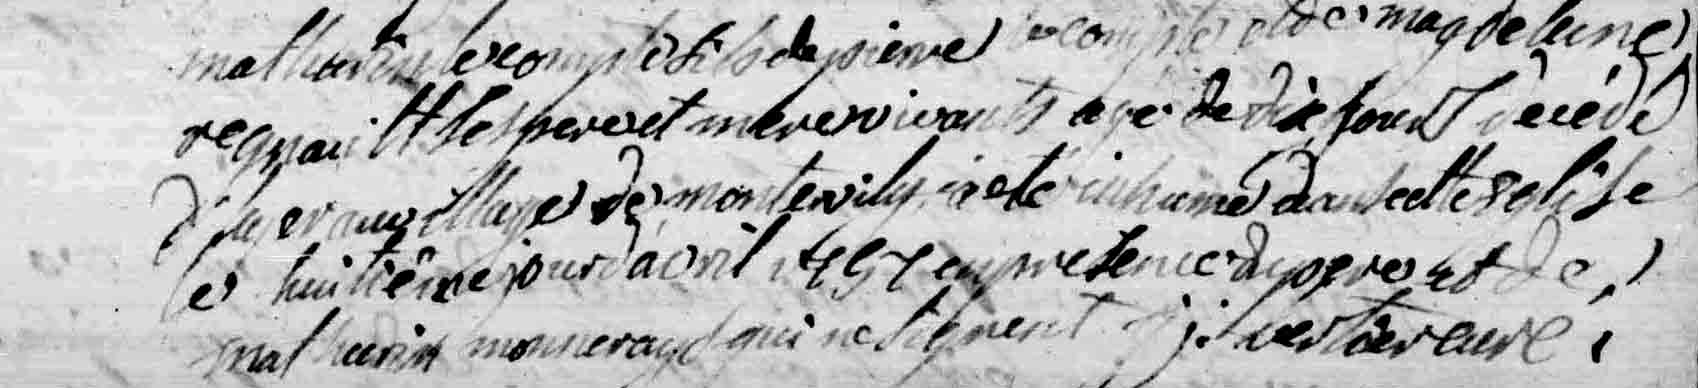 mathurin lecompte fils de pierre lecompte et de magdeleine
regnault ses pere et mere vivants agé de dix jours décédé
d'hyer au village de montervily a eté inhumé dans cette eglise
le huitiême jour d'avril en presence du pere et de
mathurin monneraye qui ne signent j: vertier curé